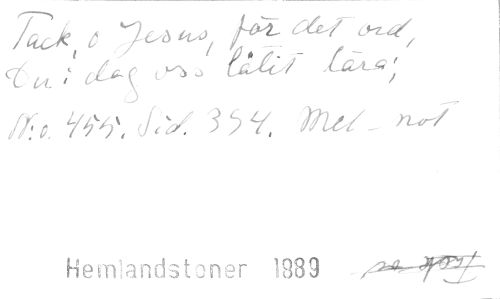 Tack, o Jesus, för det ord,
Du i dag oss låtit lära;
N:o. 455. Sid. 354. Mel-not
Hemlandstoner 1889